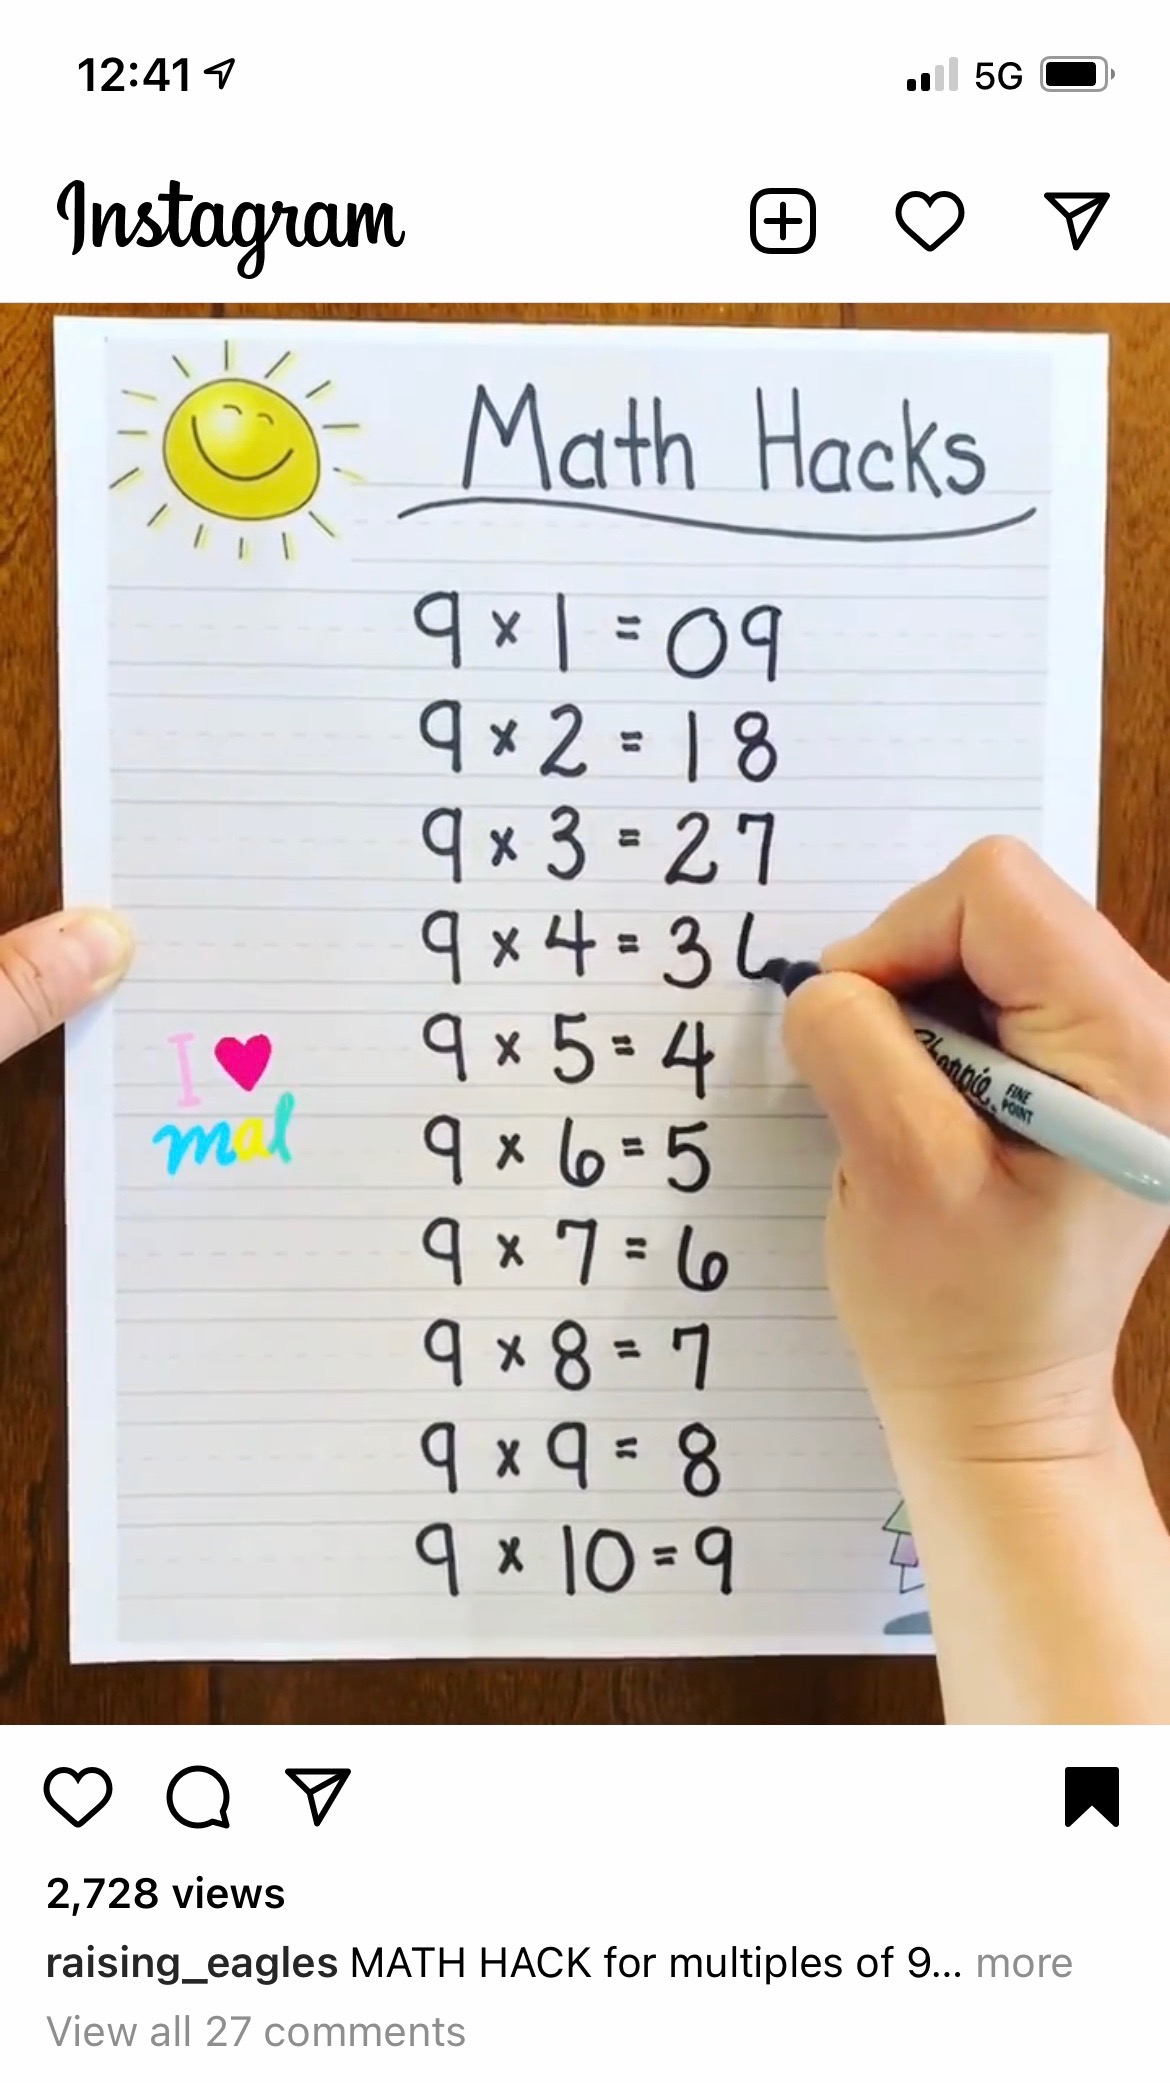 12:41 5G
Instagram
Math Hacks
9 x 1 = 09
9 x 2 = 18
9 x 3 = 27
9 x 4 = 3
9 x 5 = 4
9 x 6 = 5
9 x 7 = 6
9 x 8 = 7
9 x 9 = 8
9 x 10 = 9
I ♥
mal
Sharpie. FINE
POINT
2,728 views
raising_eagles MATH HACK for multiples of 9... more
View all 27 comments